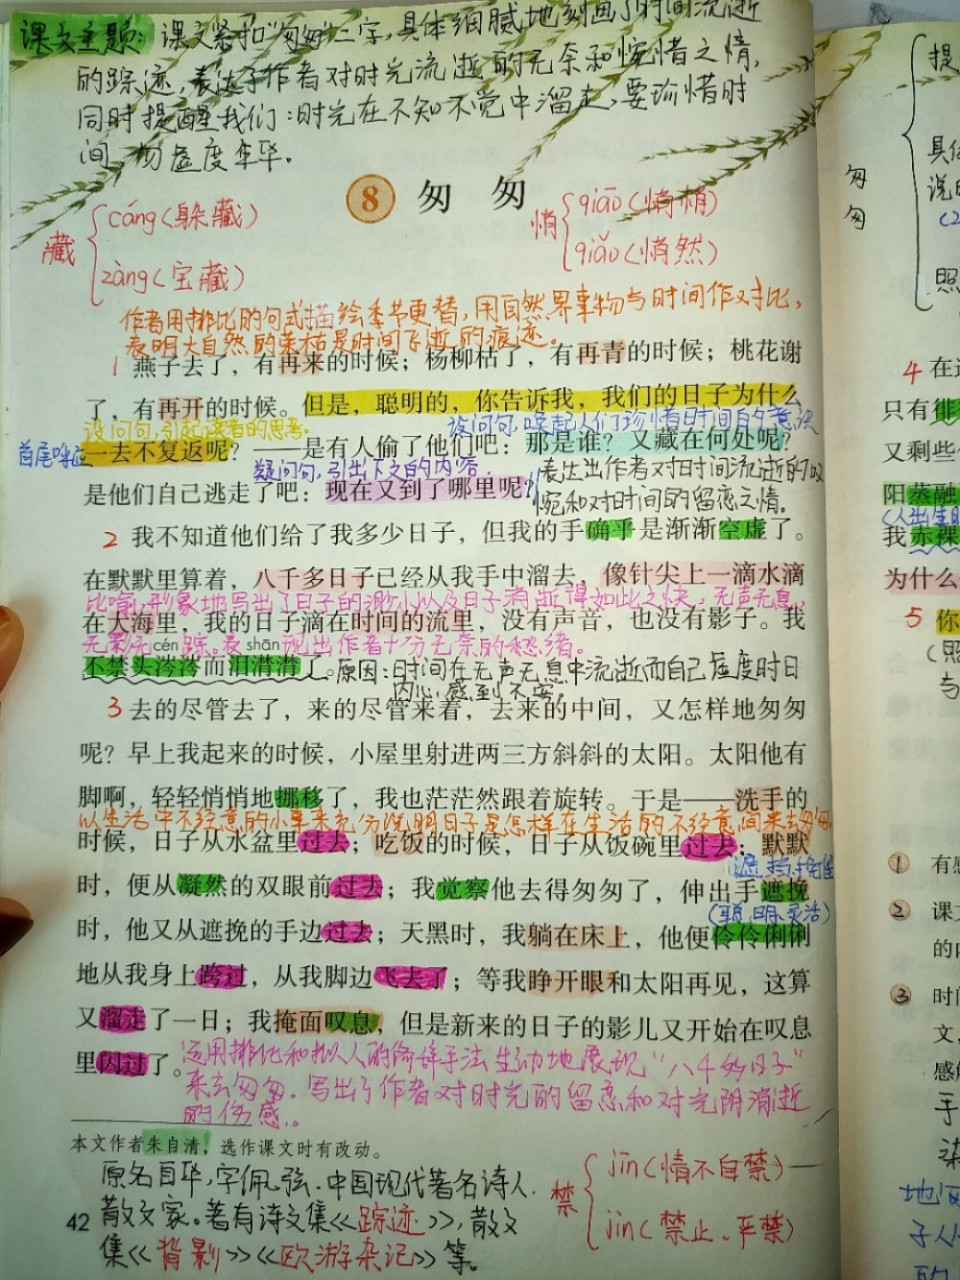 课文主题：课文紧扣“匆匆”二字，具体细腻地刻画了时间流逝
的踪迹，表达了作者对时光流逝的无奈和惋惜之情，
同时提醒我们：时光在不知不觉中溜走，要珍惜时
间，勿虚度年华。
8 匆 匆
藏 cáng（躲藏）
zàng（宝藏）
悄 qiāo（悄悄）
qiǎo（悄然）
作者用排比的句式描绘季节更替，用自然界事物与时间作对比，
表明大自然的荣枯是时间飞逝的痕迹。
1 燕子去了，有再来的时候；杨柳枯了，有再青的时候；桃花谢
了，有再开的时候。但是，聪明的，你告诉我，我们的日子为什么
设问句，引起读者的思考。
设问句，唤起人们珍惜时间的意识
首尾呼应
一去不复返呢？——是有人偷了他们吧：那是谁？又藏在何处呢？
疑问句，引出下文的内容。
表达出作者对时间流逝的叹
是他们自己逃走了吧：现在又到了哪里呢？
惋和对时间的留恋之情。
2 我不知道他们给了我多少日子，但我的手确乎是渐渐空虚了。
在默默里算着，八千多日子已经从我手中溜去，像针尖上一滴水滴
比喻，形象地写出了日子的渺小以及日子消逝得如此之快，无声无息，
在大海里，我的日子滴在时间的流里，没有声音，也没有影子。我
无影无踪。表现出作者十分无奈的愁绪。
cén shān
不禁头涔涔而泪潸潸了。
原因：时间在无声无息中流逝而自己虚度时日
内心感到不安。
3 去的尽管去了，来的尽管来着，去来的中间，又怎样地匆匆
呢？早上我起来的时候，小屋里射进两三方斜斜的太阳。太阳他有
脚啊，轻轻悄悄地挪移了，我也茫茫然跟着旋转。于是——洗手的
以生活中不经意的小事来充分说明日子是怎样在生活的不经意间来去匆匆
时候，日子从水盆里过去；吃饭的时候，日子从饭碗里过去；默默
遮挡挽留
时，便从凝然的双眼前过去；我觉察他去得匆匆了，伸出手遮挽
（聪明灵活）
时，他又从遮挽的手边过去；天黑时，我躺在床上，他便伶伶俐俐
地从我身上跨过，从我脚边飞去了；等我睁开眼和太阳再见，这算
又溜走了一日；我掩面叹息，但是新来的日子的影儿又开始在叹息
里闪过了。
运用排比和拟人的修辞手法生动地展现“八千多日子”
来去匆匆。写出了作者对时光的留恋和对光阴消逝
的伤感。
本文作者朱自清，选作课文时有改动。
原名自华，字佩弦。中国现代著名诗人，
散文家。著有诗文集《踪迹》，散文
集《背影》《欧游杂记》等。
禁 jīn（情不自禁）
jìn（禁止、严禁）
42
提
匆
匆
具体
说明
照
4 在
只有徘
又剩些
阳蒸融
我赤裸
为什么
5 你
（照
与
① 有感
② 课文
的内
③ 时间
文，
感触
手
地
子
的